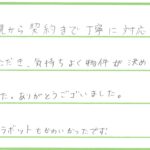 見から契約まで丁寧に対応
ただき、気持ちよく物件が決め
た。ありがとうございました。
ラボットもかわいかったです